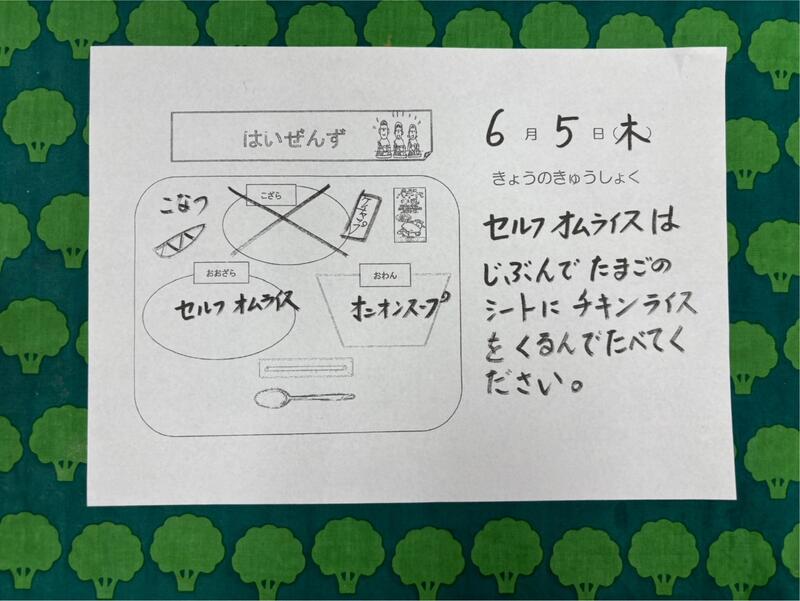 はいぜんず
こなつ
こざら
ケチャップ
おおざら
セルフ オムライス
おわん
オニオンスープ
6月5日(木)
きょうのきゅうしょく
セルフ オムライスは
じぶんで たまごの
シートに チキンライス
を くるんでたべてく
ださい。